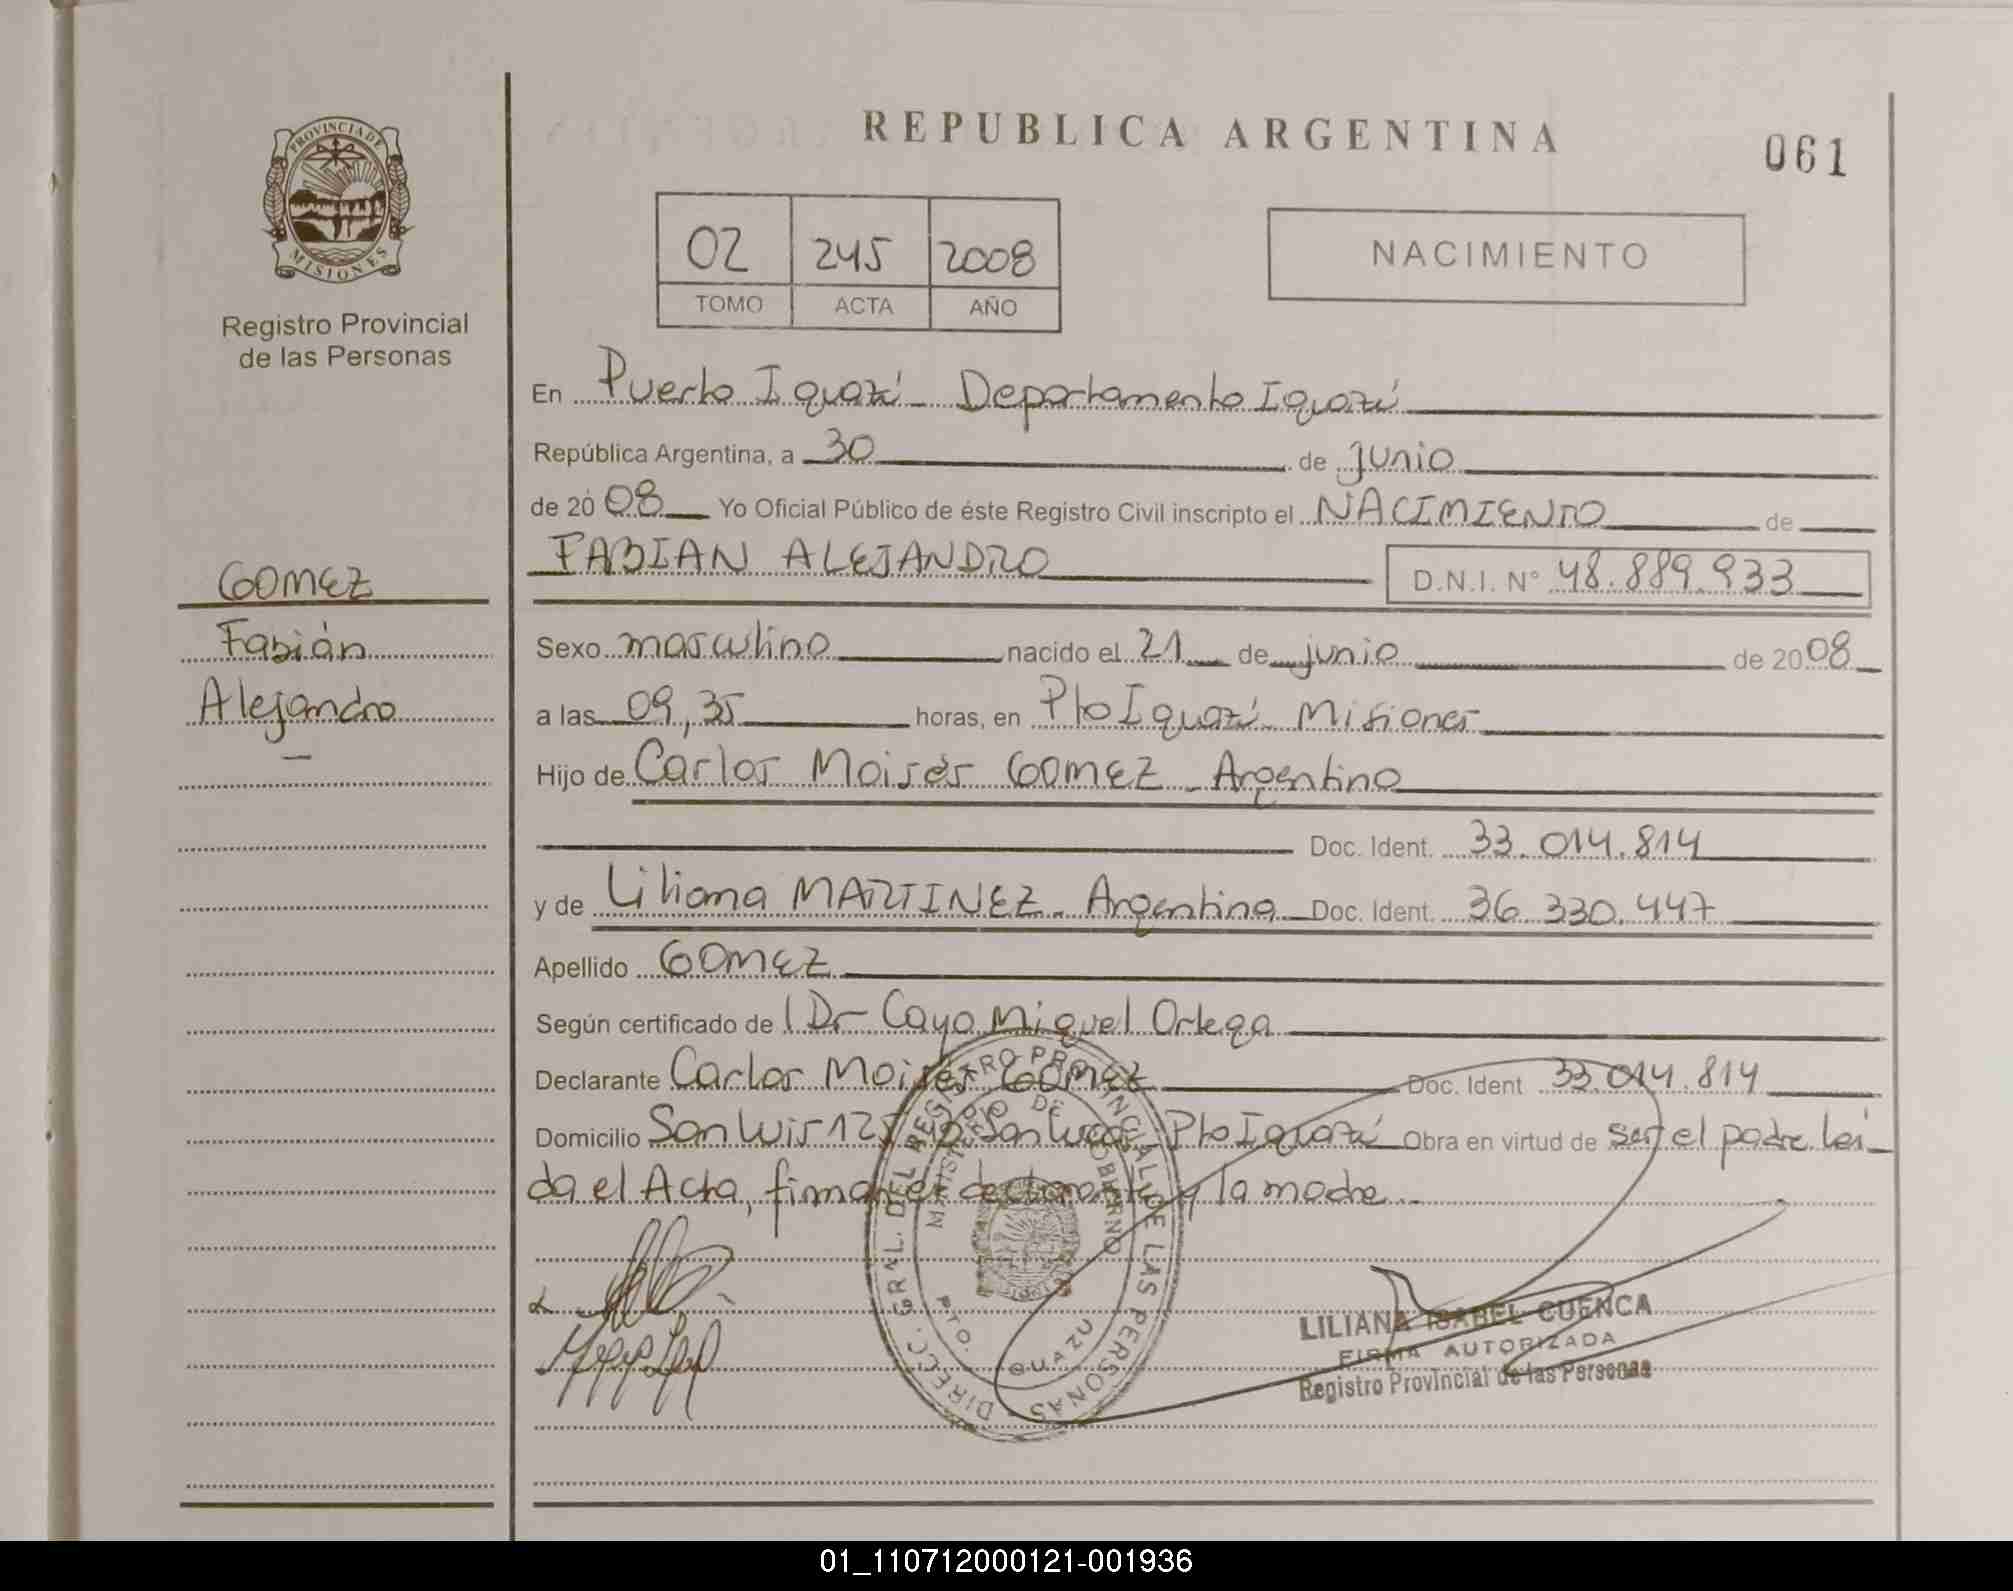 PROVINCIA DE
MISIONES
Registro Provincial
de las Personas
GOMEZ
Fabián
Alejandro
REPUBLICA ARGENTINA
061
02 245 2008
TOMO ACTA AÑO
NACIMIENTO
En Puerto Iguazú - Departamento Iguazú
República Argentina, a 30 de junio
de 2008 Yo Oficial Público de éste Registro Civil inscripto el NACIMIENTO de
FABIAN ALEJANDRO D.N.I. N° 48.889.933
Sexo masculino nacido el 21 de junio de 2008
a las 09,35 horas, en Pto Iguazú - Misiones
Hijo de Carlos Moisés GOMEZ - Argentino
Doc. Ident. 33.014.814
y de Liliana MARTINEZ - Argentina Doc. Ident. 36.330.447
Apellido GOMEZ
Según certificado del Dr Cayo Miguel Ortega
Declarante Carlos Moisés GOMEZ Doc. Ident 33.014.814
Domicilio San Luis 125 San Lucas - Pto Iguazú Obra en virtud de ser el padre Lei-
da el Acta, firman el declarante y la madre.
DIRECC. GRAL. DEL REGISTRO PROVINCIAL DE LAS PERSONAS
MINISTERIO DE GOBIERNO
PTO. IGUAZU
LILIANA ISABEL CUENCA
FIRMA AUTORIZADA
Registro Provincial de las Personas
01_110712000121-001936